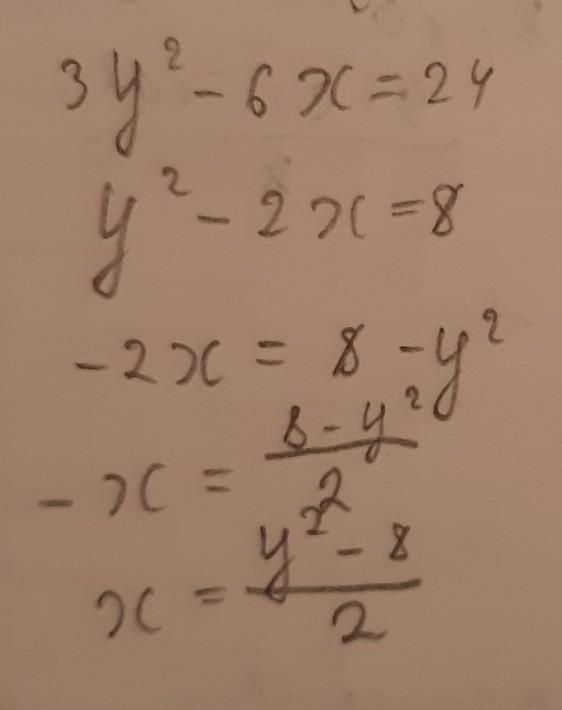 3y² - 6x = 24
y² - 2x = 8
-2x = 8 - y²
-x = (8 - y²)/2
x = (y² - 8)/2